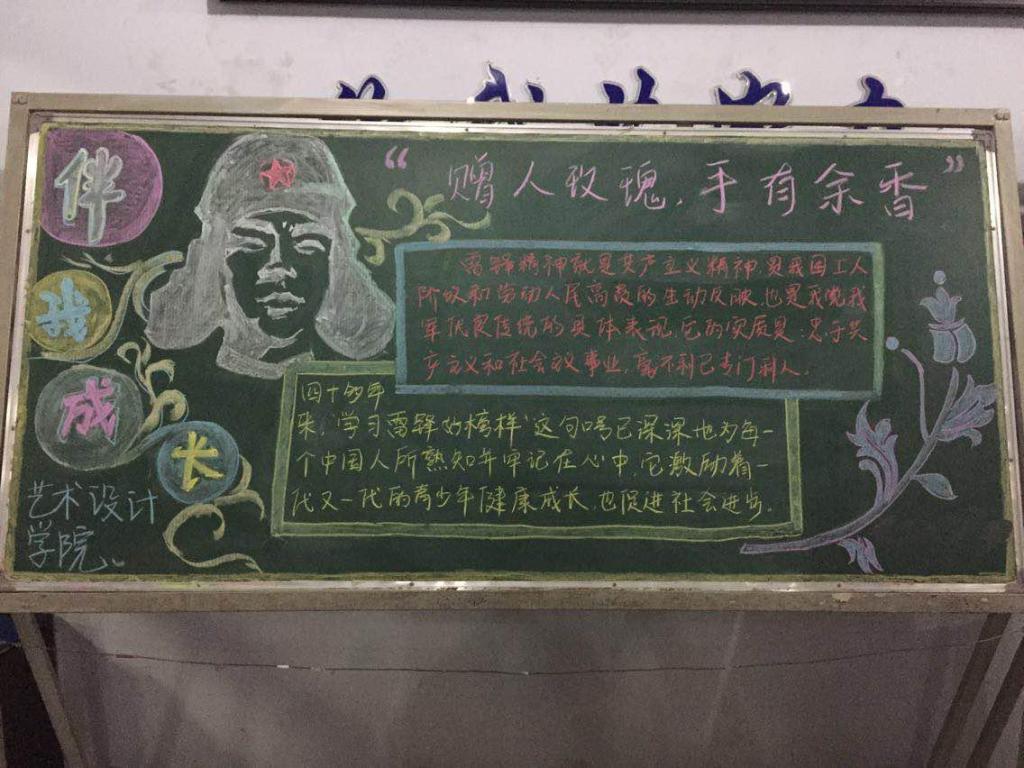 伴
我
成
长
艺术设计
学院
“赠人玫瑰，手有余香”
雷锋精神就是共产主义精神，是我国工人
阶级和劳动人民高贵的生动反映，也是我党我
军优良传统的具体表现，它的实质是：忠于共
产主义和社会主义事业，毫不利己专门利人。
四十多年
来，“学习雷锋好榜样”这句口号已深深地为每一
个中国人所熟知并牢记在心中，它激励着一
代又一代的青少年健康成长，也促进社会进步。